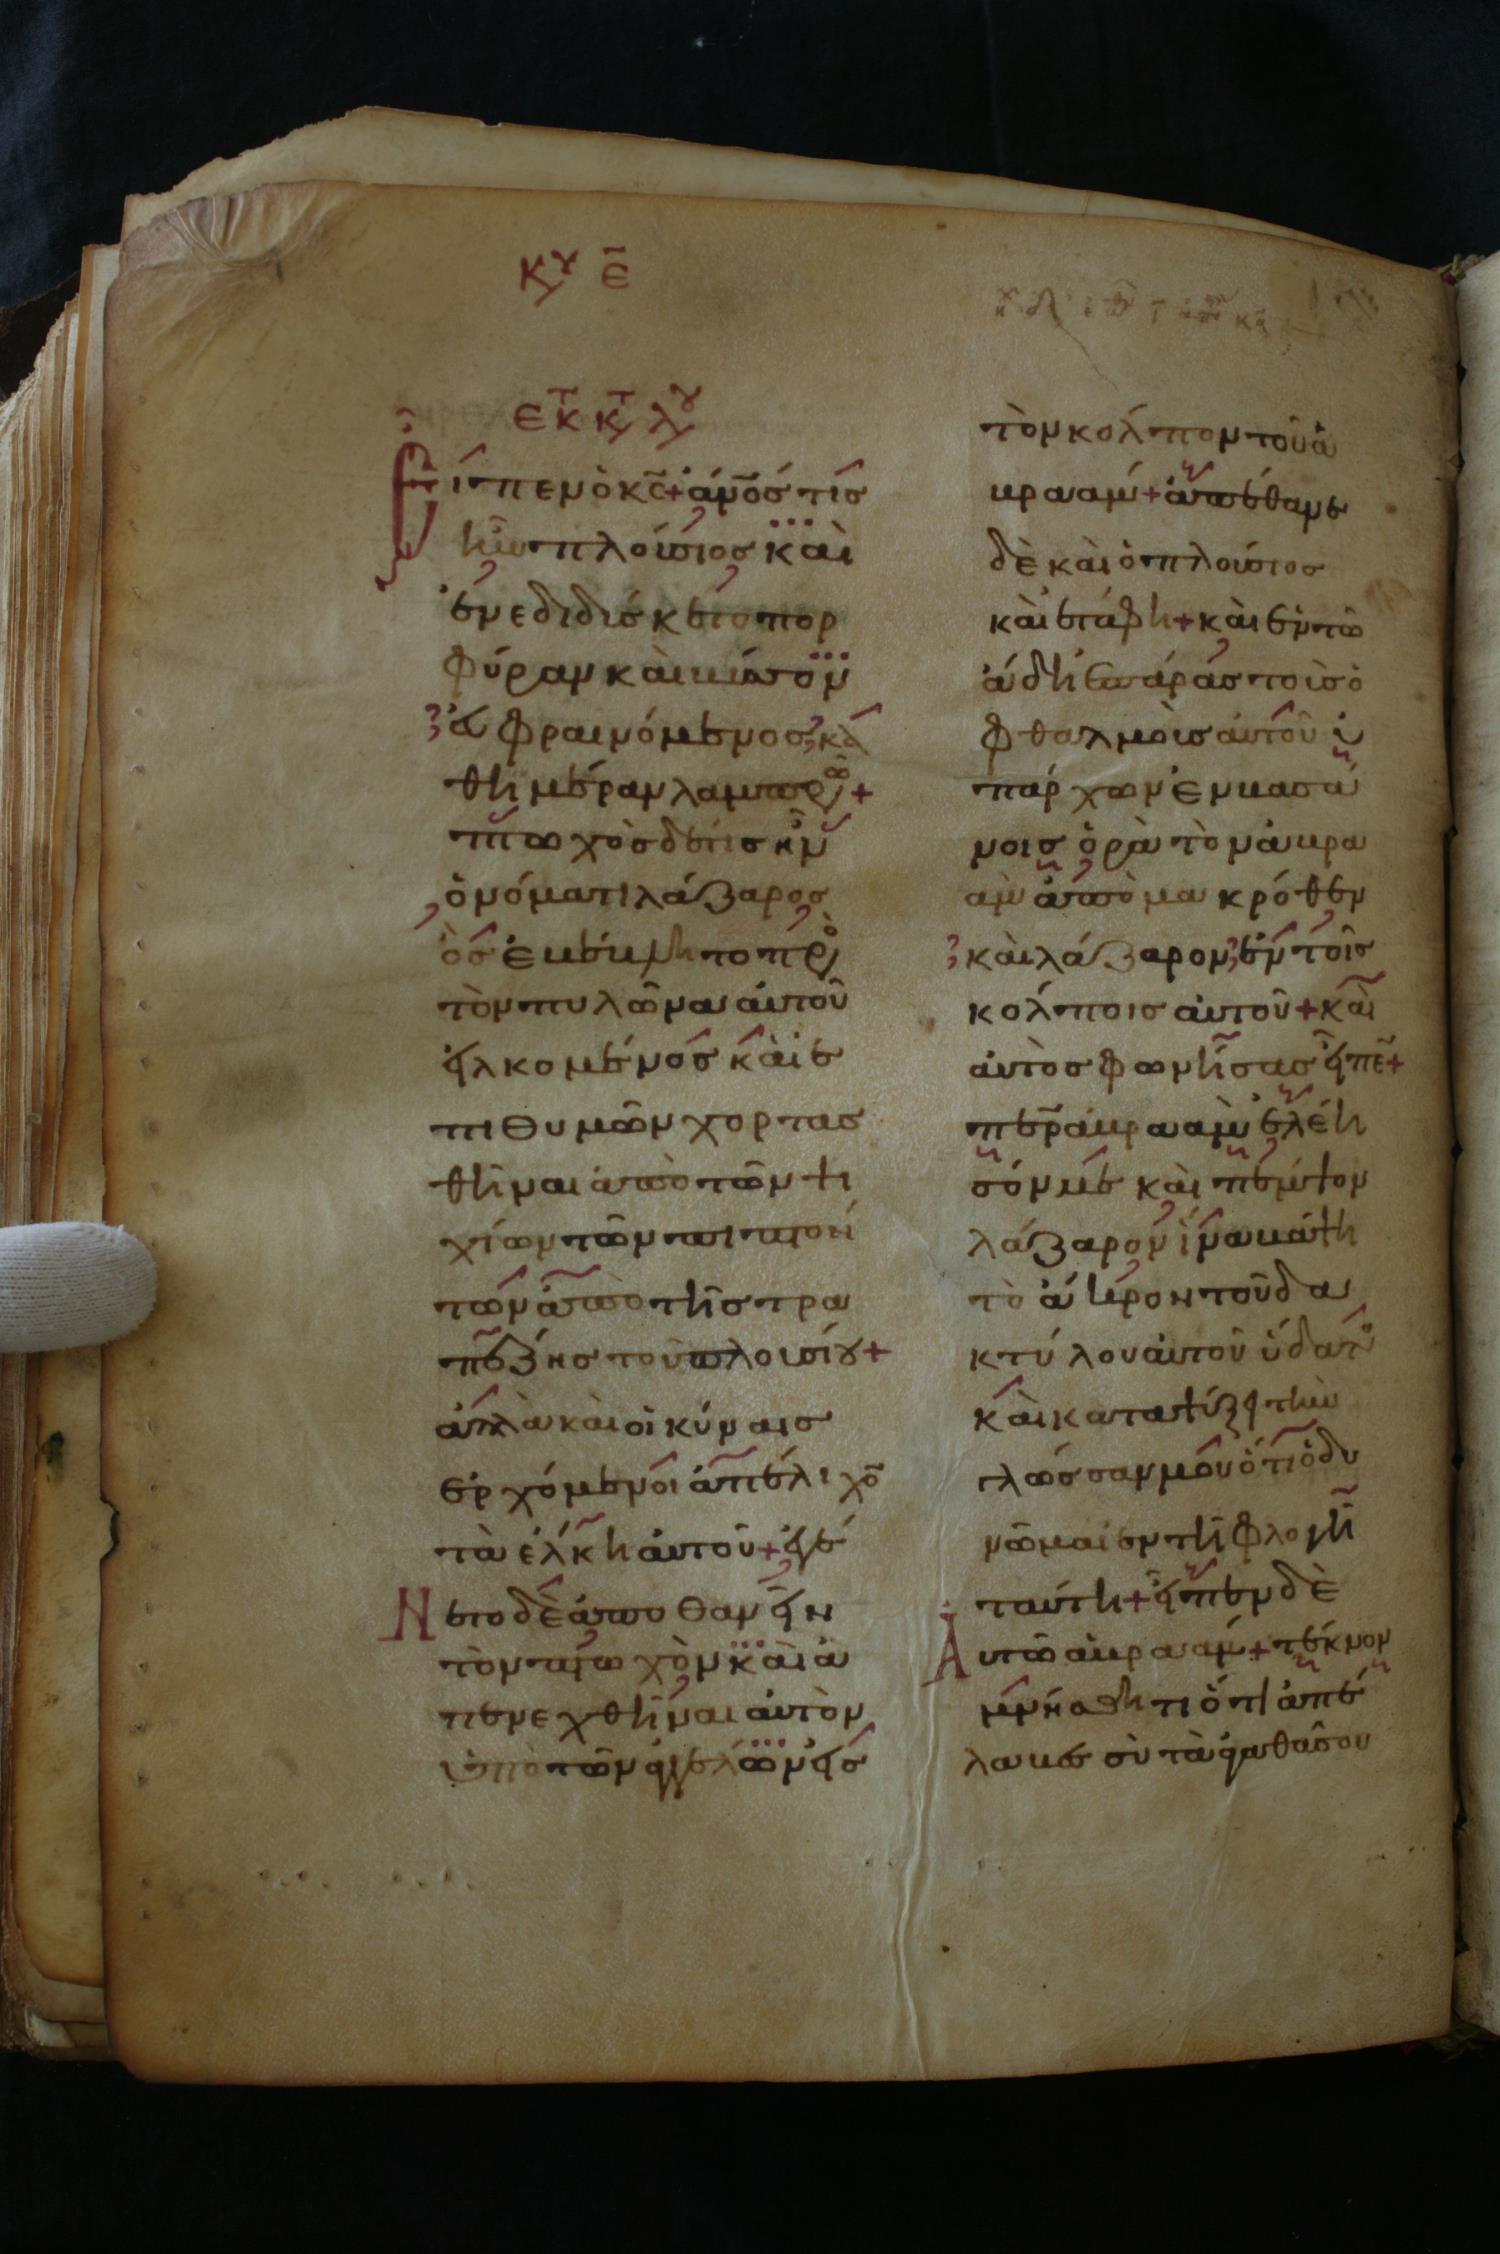 Κυ ε̄
εκ τ κτ λου
Εἶπεν ὁ κ̅ς̅ + ἀν̅ο̅ς τίς
ἦν πλούσιος καὶ
ἐνεδιδύσκετο πορ
φύραν καὶ βύσσον
εὐφραινόμενος κα
θημέραν λαμπρῶς +
πτωχὸς δέ τις ἦν
ὀνόματι λάζαρος
ὃς ἐβέβλητο πρὸς
τὸν πυλῶνα αὐτοῦ
εἱλκομένος καὶ ἐ
πιθυμῶν χορτασ
θῆναι ἀπὸ τῶν ψι
χίων τῶν πιπτόν
των ἀπὸ τῆς τρα
πέζης τοῦ πλουσίου +
ἀλλὰ καὶ οἱ κύναις
ἐρχόμενοι ἀπέλιχον
τὰ ἕλκη αὐτοῦ + ἐγέ
Νετο δὲ ἀποθανεῖν
τὸν πτωχὸν καὶ ἀ
πενεχθῆναι αὐτὸν
ὑπὸ τῶν ἀγγέλων εἰς
τὸν κόλπον τοῦ ἀ
βραάμ + ἀπέθανε
δὲ καὶ ὁ πλούσιος
καὶ ἐτάφη + καὶ ἐν τῶ
ἅδη ἐπάρας τοὺς ὀ
φθαλμοὺς αὐτοῦ ὑ
πάρχων ἐν βασά
νοις ὁρᾶ τὸν ἀβρα
ὰμ ἀπὸ μακρόθεν
καὶ λάζαρον ἐν τοῖς
κόλποις αὐτοῦ + καὶ
αὐτὸς φωνήσας εἶπε +
πε̅ρ ἀβραὰμ ἐλέη
σόν με καὶ πέμψον
λάζαρον ἵνα βάψη
τὸ ἄκρον τοῦ δα
κτύλου αὐτοῦ ὕδατος
καὶ καταψύξει τὴν
γλῶσσαν μου ὅτι ὀδυ
νῶμαι ἐν τῆ φλογὶ
ταύτη + εἶπεν δὲ
Αὐτῶ ἀβραάμ + τέκνον
μνήσθητι ὅτι ἀπέ
λαβες σὺ τὰ ἀγαθά σου